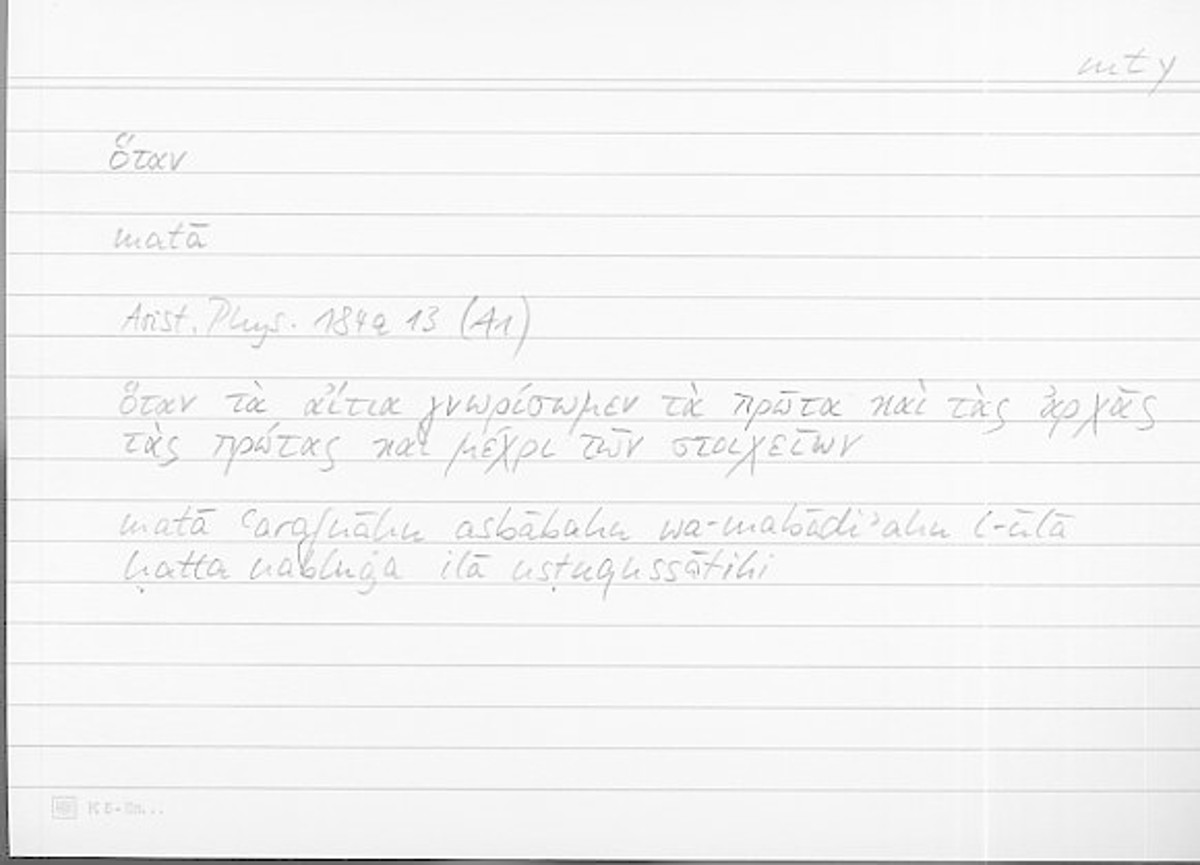 mty
ὅταν
matā
Arist. Phys. 184a 13 (A1)
ὅταν τὰ αἴτια γνωρίσωμεν τὰ πρῶτα καὶ τὰς ἀρχὰς
τὰς πρώτας καὶ μέχρι τῶν στοιχείων
matā ʿarafnāhu asbābahu wa-mabādiʾahu l-ūlā
ḥatta nabluġa ilā usṭuqussātihi